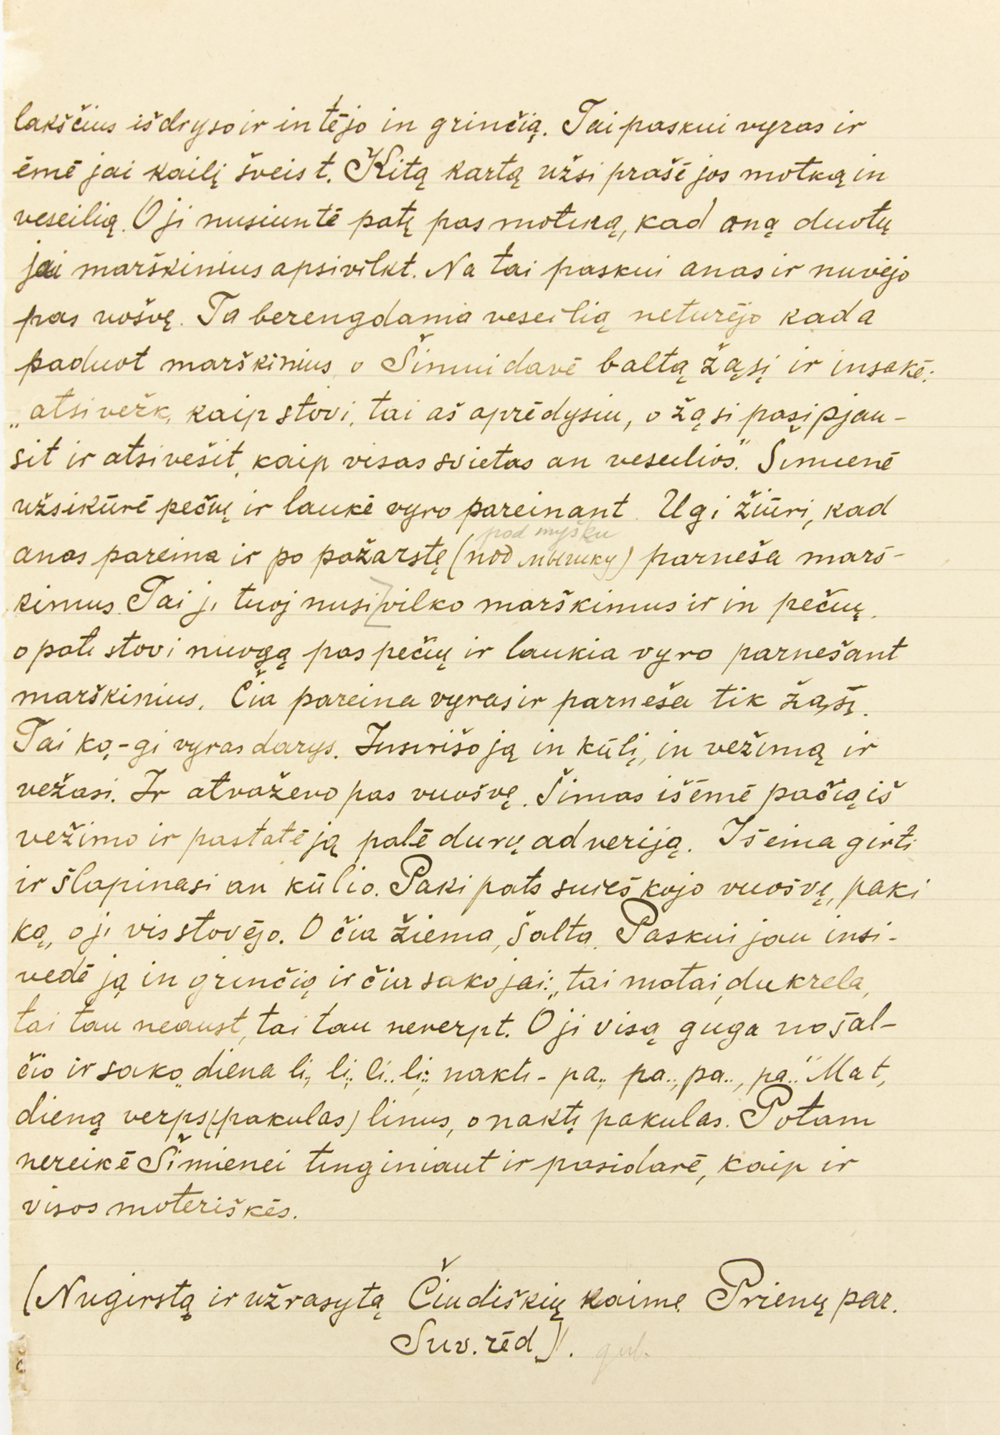 lakščius išdryso ir intėjo in grinčią. Tai paskui vyras ir
ėmė jai kailį šveist. Kitą kartą užsiprašė jos motką in
veseilią. O ji nusiuntė patį pas motuką, kad aną duotų
jai marškinius apsivilkt. Na tai paskui anas ir nuvėjo
pas uošvę. Ta berengdama veseilią neturėjo kada
paduot marškinius, o Šimui davė baltą žąsį ir insakė:
„atsivežk, kaip stovi, tai aš aprėdysiu, o žąsį pasipjau-
sit ir atsivešit, kaip visas svietas an veseilios." Šimienė
užsikūrė pečių ir laukė vyro pareinant. Ugi žiūri, kad
pod myšku
anas pareina ir po pažarstę (под мышку) parneša marš-
kinius. Tai ji tuoj nusivilko marškinius ir in pečių,
o pati stovi nuogą pas pečių ir laukia vyro parnešant
marškinius. Čia pareina vyras ir parneša tik žąsį.
Tai ką-gi vyras darys. Insirišo ją in kūlį, in vežimą ir
vežasi. Ir atvaževo pas vuošvę. Šimas išėmė pačią iš
vežimo ir pastatė ją palė durų adveriją. Išeina girti
ir šlapinasi an kūlio. Paki pats suieškojo vuošvę, paki
ką, o ji vis stovėjo. O čia žiema, šalta. Paskui jau insi-
vedė ją in grinčią ir čia sako jai: „tai matai, dukrela,
tai tau neaust, tai tau neverpt. O ji visą guga no šal-
čio ir sako „diena li„ li„ li.. li„ nakti - pa„ pa.., pa.., pa.." Mat,
dieną verps (pakulas) linus, o naktį pakulas. Potam
nereikė Šimienei tinginiaut ir pasidarė, kaip ir
visos moteriškės.
(Nugirstą ir užrasytą Čiudiškių kaime Prienų par.
Suv. rėd.). gub.